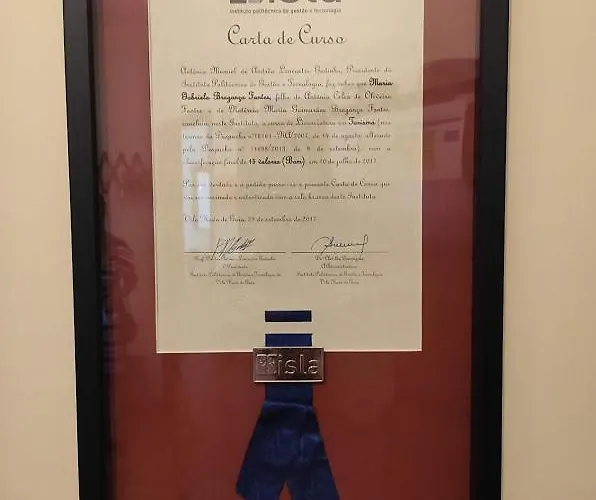 isla
instituto politécnico de gestão e tecnologia
Carta de Curso
António Manuel de Andrão Lencastre Godinho, Presidente do
Instituto Politécnico de Gestão e Tecnologia, faz saber que Maria
Gabriela Braganza Fontes, filha de António Celso de Oliveira
Fontes e de Maria Guimarães Braganza Fontes,
concluiu, neste Instituto, o curso de Licenciatura em Turismo (nos
termos do Despacho nº de 14 de agosto, alterado
pelo Despacho nº 11698/2013, de 9 de setembro), com a
classificação final de 15 valores (Bom), em 10 de julho de 2017.
Por ser verdade e a pedido passo-vos a presente Carta de Curso que
vai ser assinada e autenticada com o selo branco deste Instituto.
Vila Nova de Gaia, de setembro de 2017
O Presidente
A Administradora
Instituto Politécnico de Gestão e Tecnologia de
Instituto Politécnico de Gestão e Tecnologia
Vila Nova de Gaia
Vila Nova de Gaia
isla